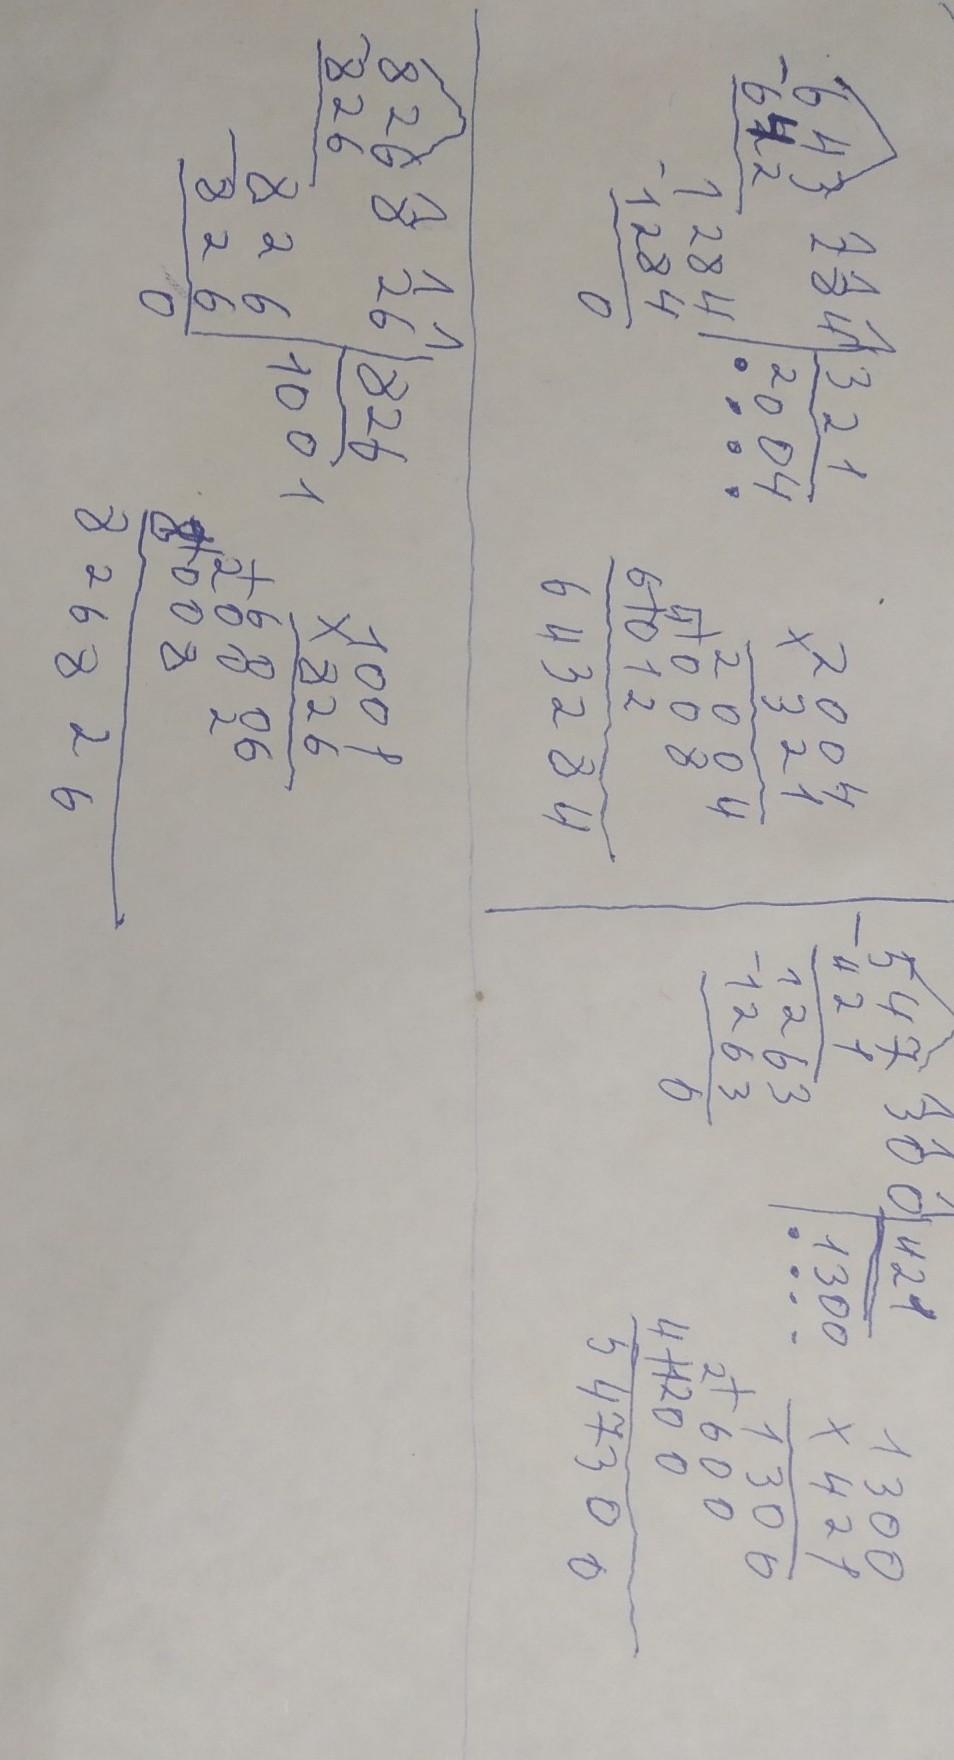 643284 321
-642 2004
1284
-1284
0
2004
× 321
2004
+4008
6+012
643284
547300 421
-421 1300
1263
-1263
0
1300
× 421
1300
2+600
547300
826826 826
-826 1001
826
-826
0
1001
×826
6006
+2002
+8008
826826